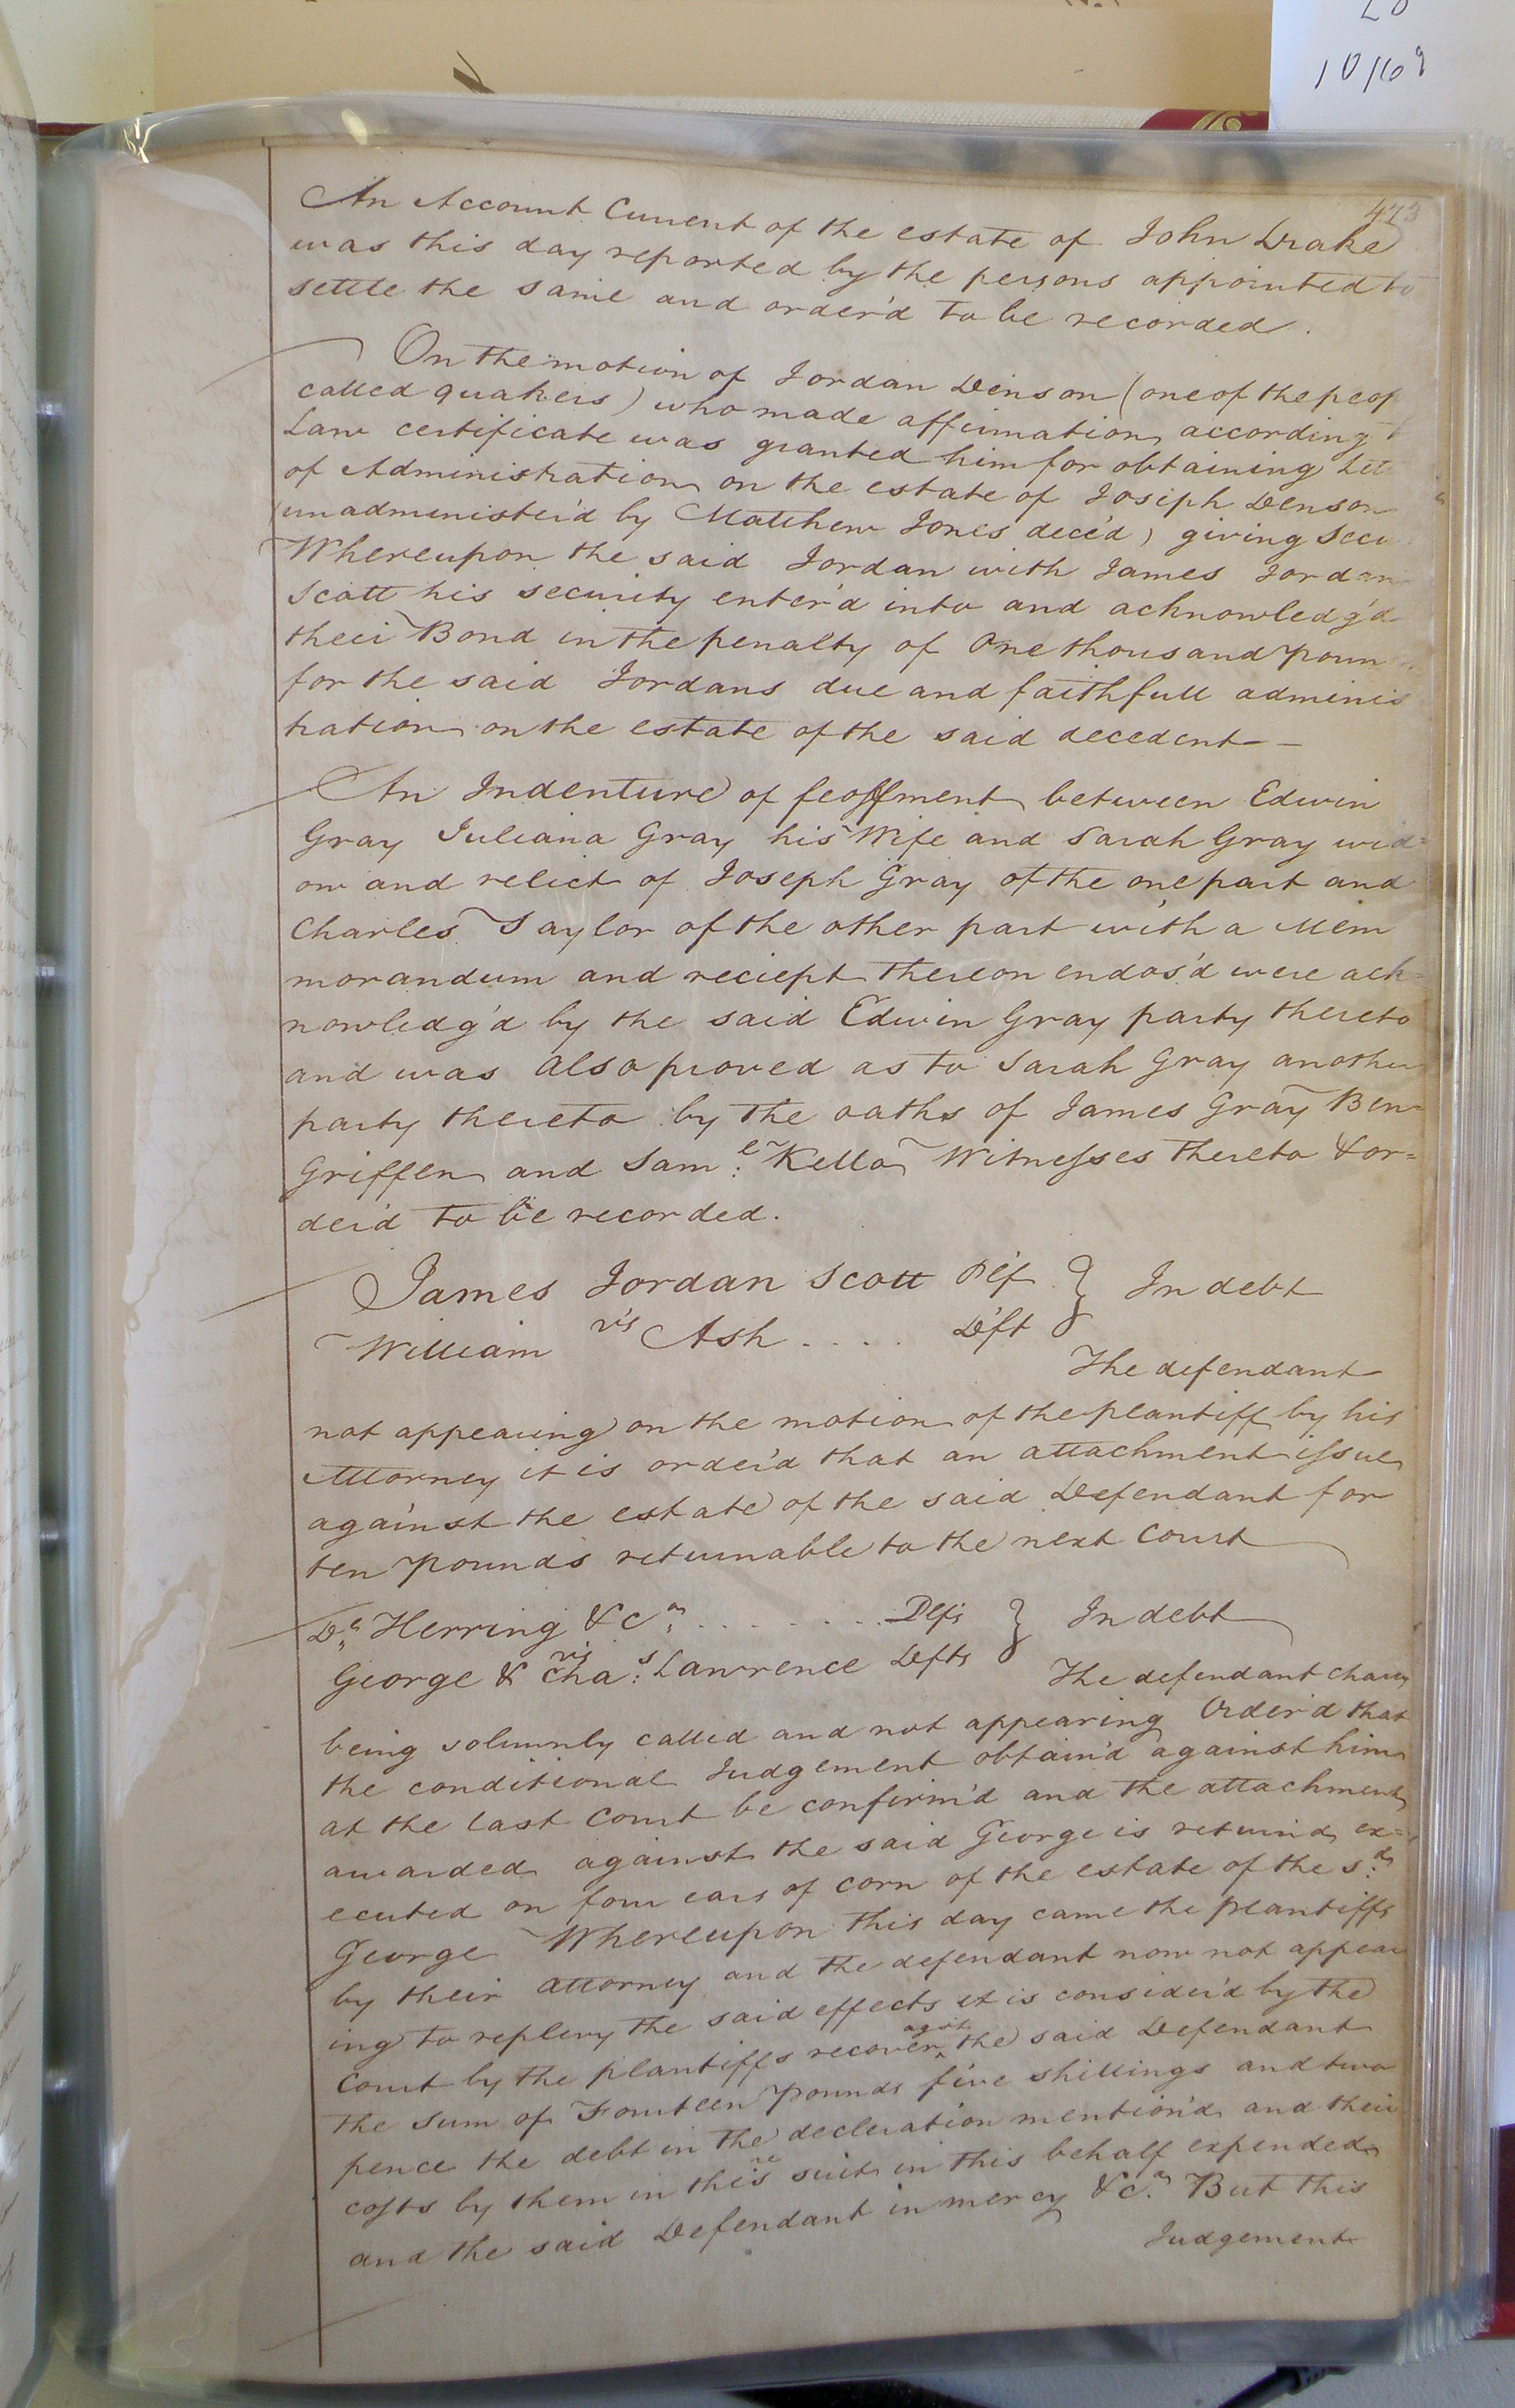 10/69
473
An Account Current of the estate of John Drake
was this day reported by the persons appointed to
settle the same and order'd to be recorded.
On the motion of Jordan Denson (one of the peop
called quakers) who made affirmation according t
Law certificate was granted him for obtaining Lett
of Administration on the estate of Joseph Denson
(unadminister'd by Matthew Jones dece'd) giving Secu
Whereupon the said Jordan with James Jordan
Scott his security enter'd into and acknowledg'd
their Bond in the penalty of One thousand poun
for the said Jordans due and faithfull adminis
tration on the estate of the said decedent
An Indenture of feoffment between Edwin
Gray Juliana Gray his Wife and Sarah Gray wid=
ow and relict of Joseph Gray of the one part and
Charles Taylor of the other part with a Mem
morandum and reciept thereon endos'd were ack=
nowledg'd by the said Edwin Gray party thereto
and was also proved as to Sarah Gray another
party thereto by the oaths of James Gray Ben
Griffen and Sam:l Kello Witnesses thereto & or=
der'd to be recorded.
James Jordan Scott Plf } In debt
vs
William Ash .... Deft
The defendant
not appearing on the motion of the plantiff by his
Attorney it is order'd that an attachment issue
against the estate of the said Defendant for
ten pounds returnable to the next Court
Dl Herring & Ca ....... Plfs } In debt
vs
George & Cha:s Lawrence Defts
The defendant Charles
being solemnly called and not appearing Order'd that
the conditional Judgement obtain'd against him
at the last Court be confirm'd and the attachment
awarded against the said George is return'd ex=
ecuted on four ears of corn of the estate of the sd
George Whereupon this day came the plantiffs
by their attorney and the defendant now not appear
ing to replevy the said effects it is consider'd by the
Court by the plantiffs recover agst the said Defendant
the sum of Fourteen pounds five shillings and two
pence the debt in the decleration mention'd and their
costs by them in this suit in this behalf expended
and the said Defendant in mercy &c.a But this
Judgement